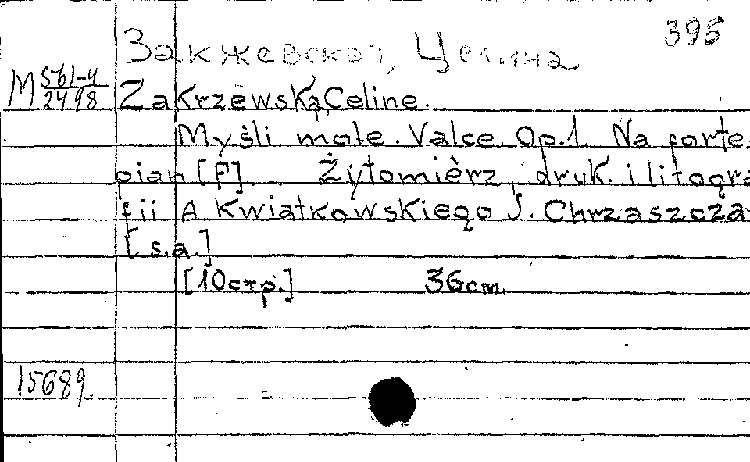 395
Закжевская, Целина
М 561-4/2498
Zakrzewska, Celine.
Myśli mole. Valce. Op.1. Na forte
pian [F]. Żytomierz, druk. i litogra
fii A Kwiatkowskiego J. Chrząszcza
[s.a.]
[10стр.] 36cm.
15689